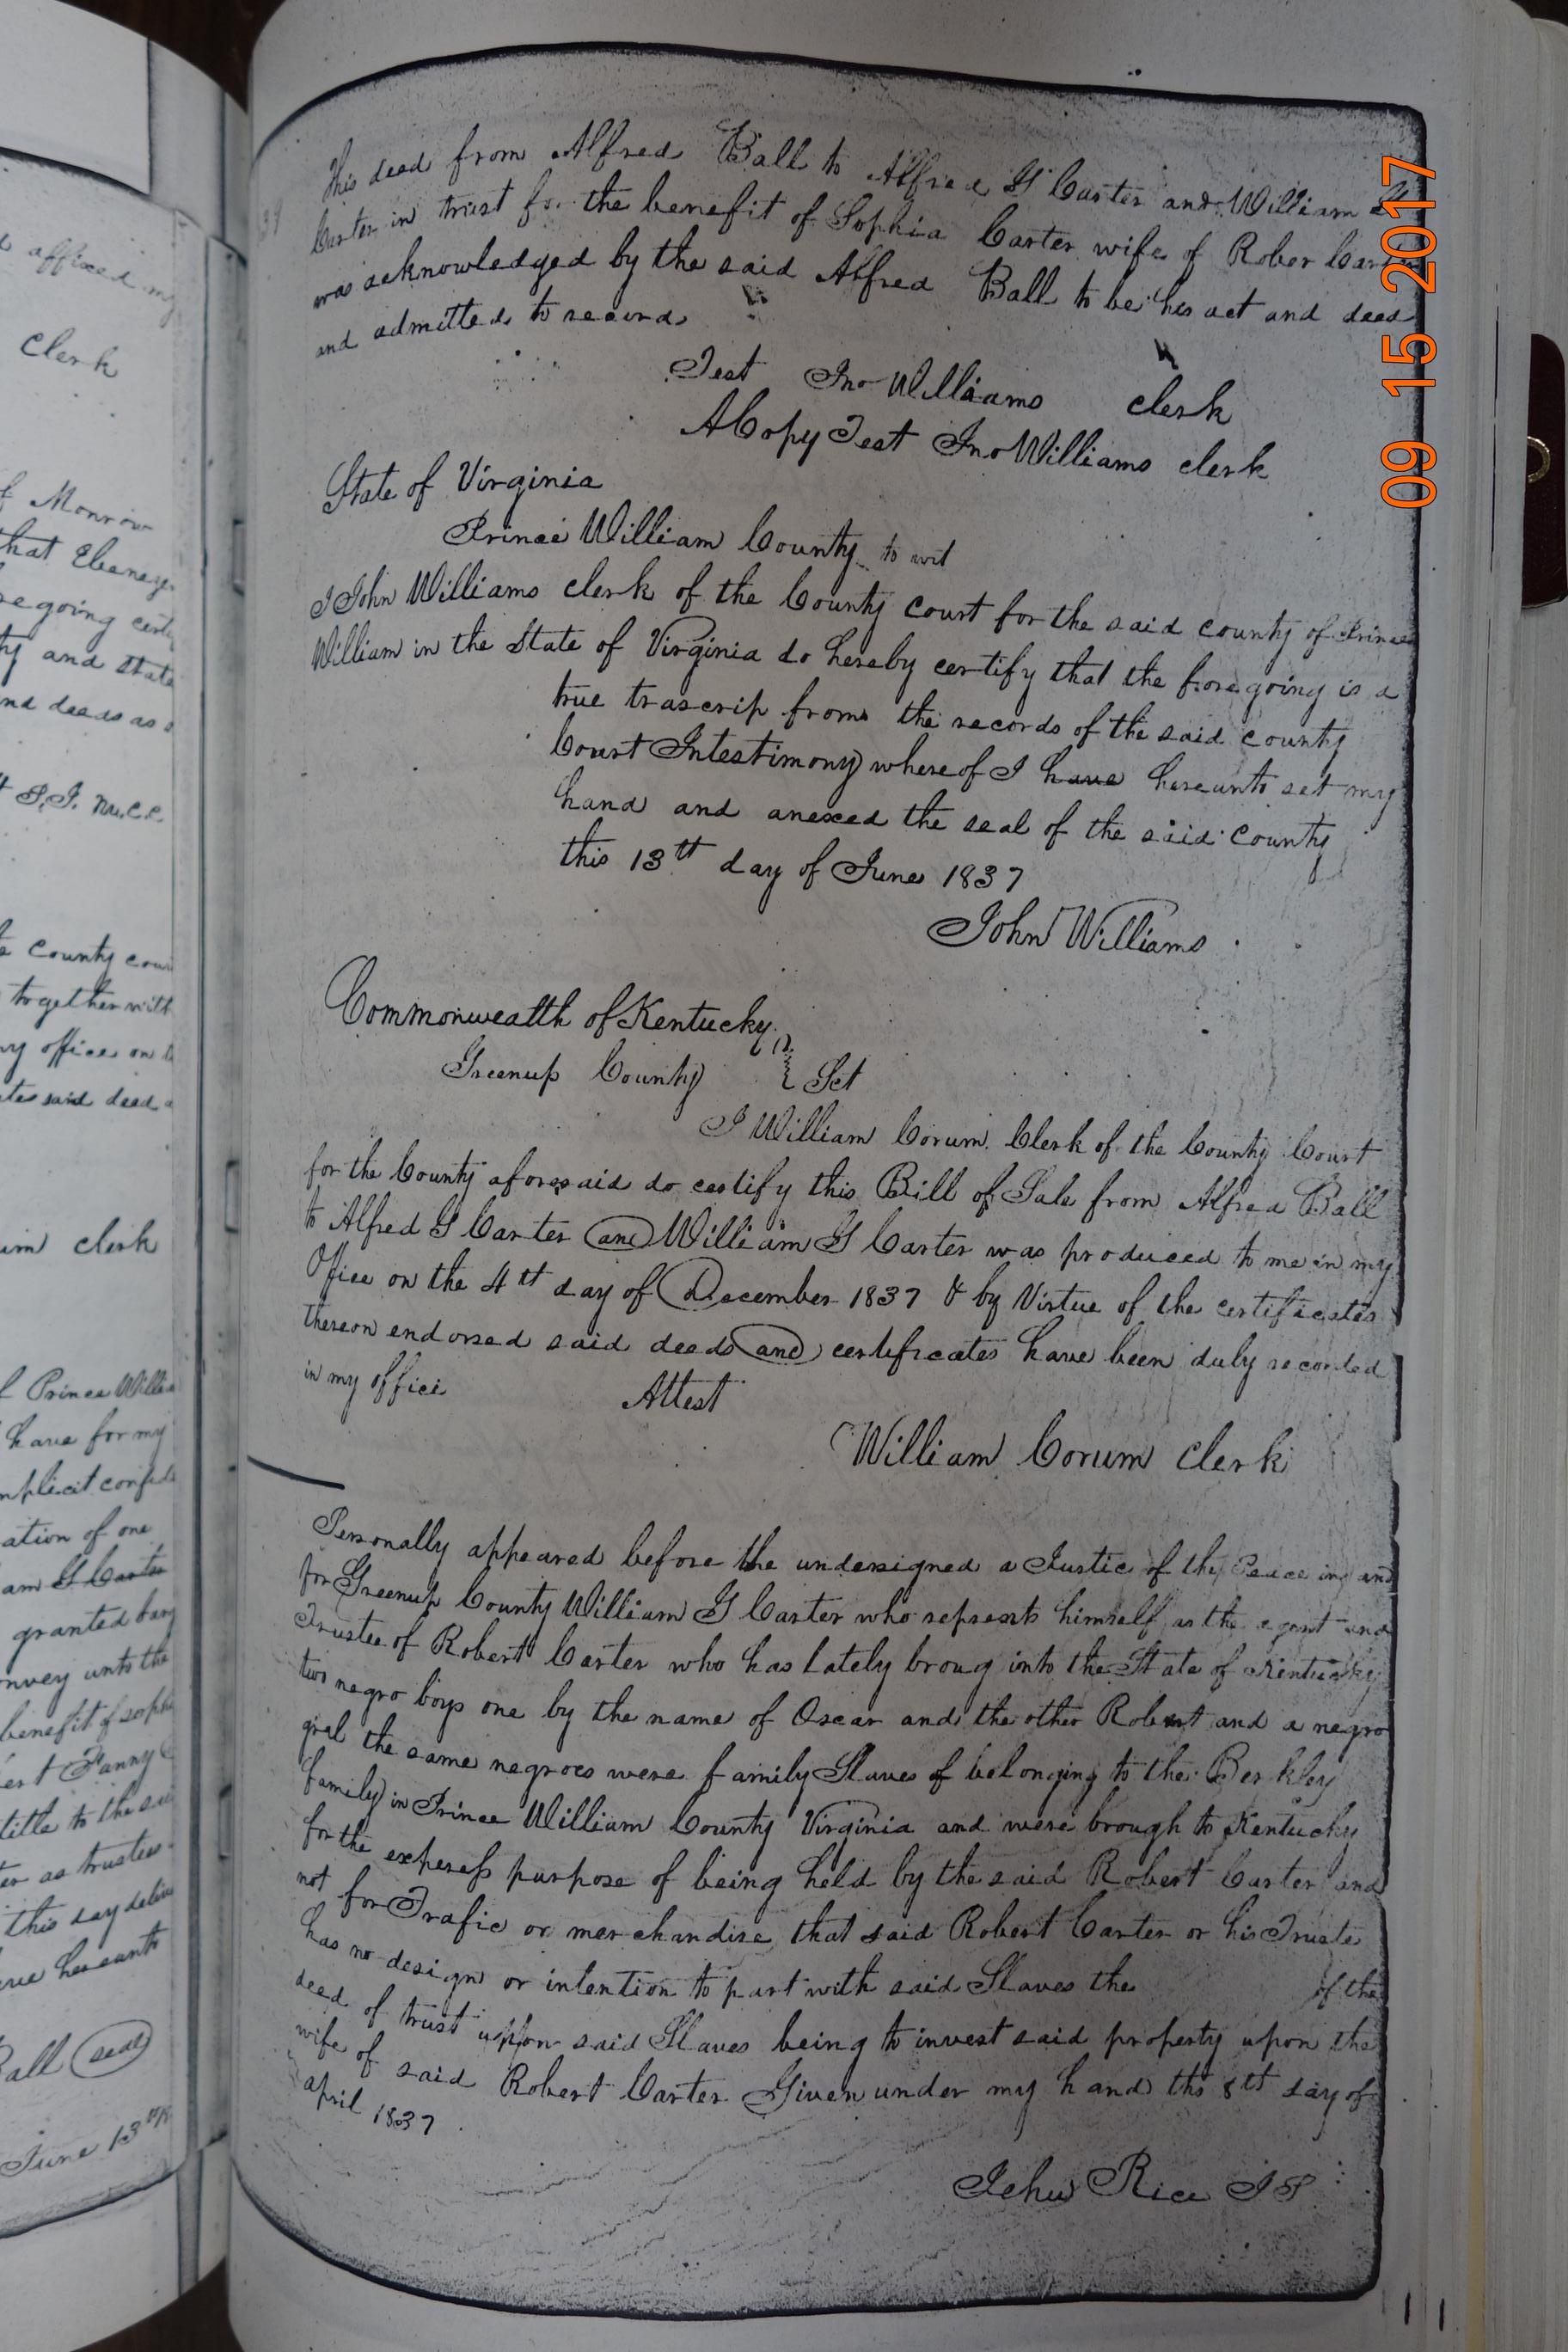 d affixed my
Clerk
f Monroe
that Ebeneze
regoing certi
ty and State
nd deeds as
te County cour
together with
my office on t
tes said deed
um clerk
f Prince Willia
have for my
mplicit confid
ation of one
am G Carter
granted barg
onvey unto the
benefit of soph
ert Fanny
title to the sa
ter as trustee
this day deliv
ave hereunto
Ball seal
June 13th
This deed from Alfred Ball to Alfred G Carter and William G
Carter in trust for the benefit of Sophia Carter wife of Rober Carter
was acknowledged by the said Alfred Ball to be his act and deed
and admitted to record
Test Jno Williams Clerk
A Copy Test Jno Williams clerk
State of Virginia
Prince William County to wit
I John Williams clerk of the County court for the said county of Prince
William in the State of Virginia do hereby certify that the foregoing is a
true trascrip from the records of the said county
Court Intestimony whereof I have hereunto set my
hand and anexed the seal of the said County
this 13th day of June 1837
John Williams
Commonwealth of Kentucky
Greenup County } Sct
I William Corum Clerk of the County Court
for the County aforesaid do certify this Bill of Sale from Alfred Ball
to Alfred G Carter and William G Carter was produced to me in my
Office on the 4th day of December 1837 & by Virtue of the certificates
thereon endorsed said deeds and certificates have been duly recorded
in my office Attest
William Corum Clerk
Personally appeared before the undersigned a Justice of the Peace in and
for Greenup County William G Carter who represents himself as the agent and
Trustee of Robert Carter who has lately broug into the State of Kentucky
two negro boys one by the name of Oscar and the other Robert and a negro
girl the same negroes were family Slaves of belonging to the Berkley
family in Prince William County Virginia and were brough to Kentucky
for the express purpose of being held by the said Robert Carter and
not for Trafic or merchandise that said Robert Carter or his Truste
has no design or intention to part with said Slaves the of the
deed of trust upon said Slaves being to invest said property upon the
wife of said Robert Carter Given under my hand ths 8th day of
april 1837
Jehu Rice JP
09 15 2017